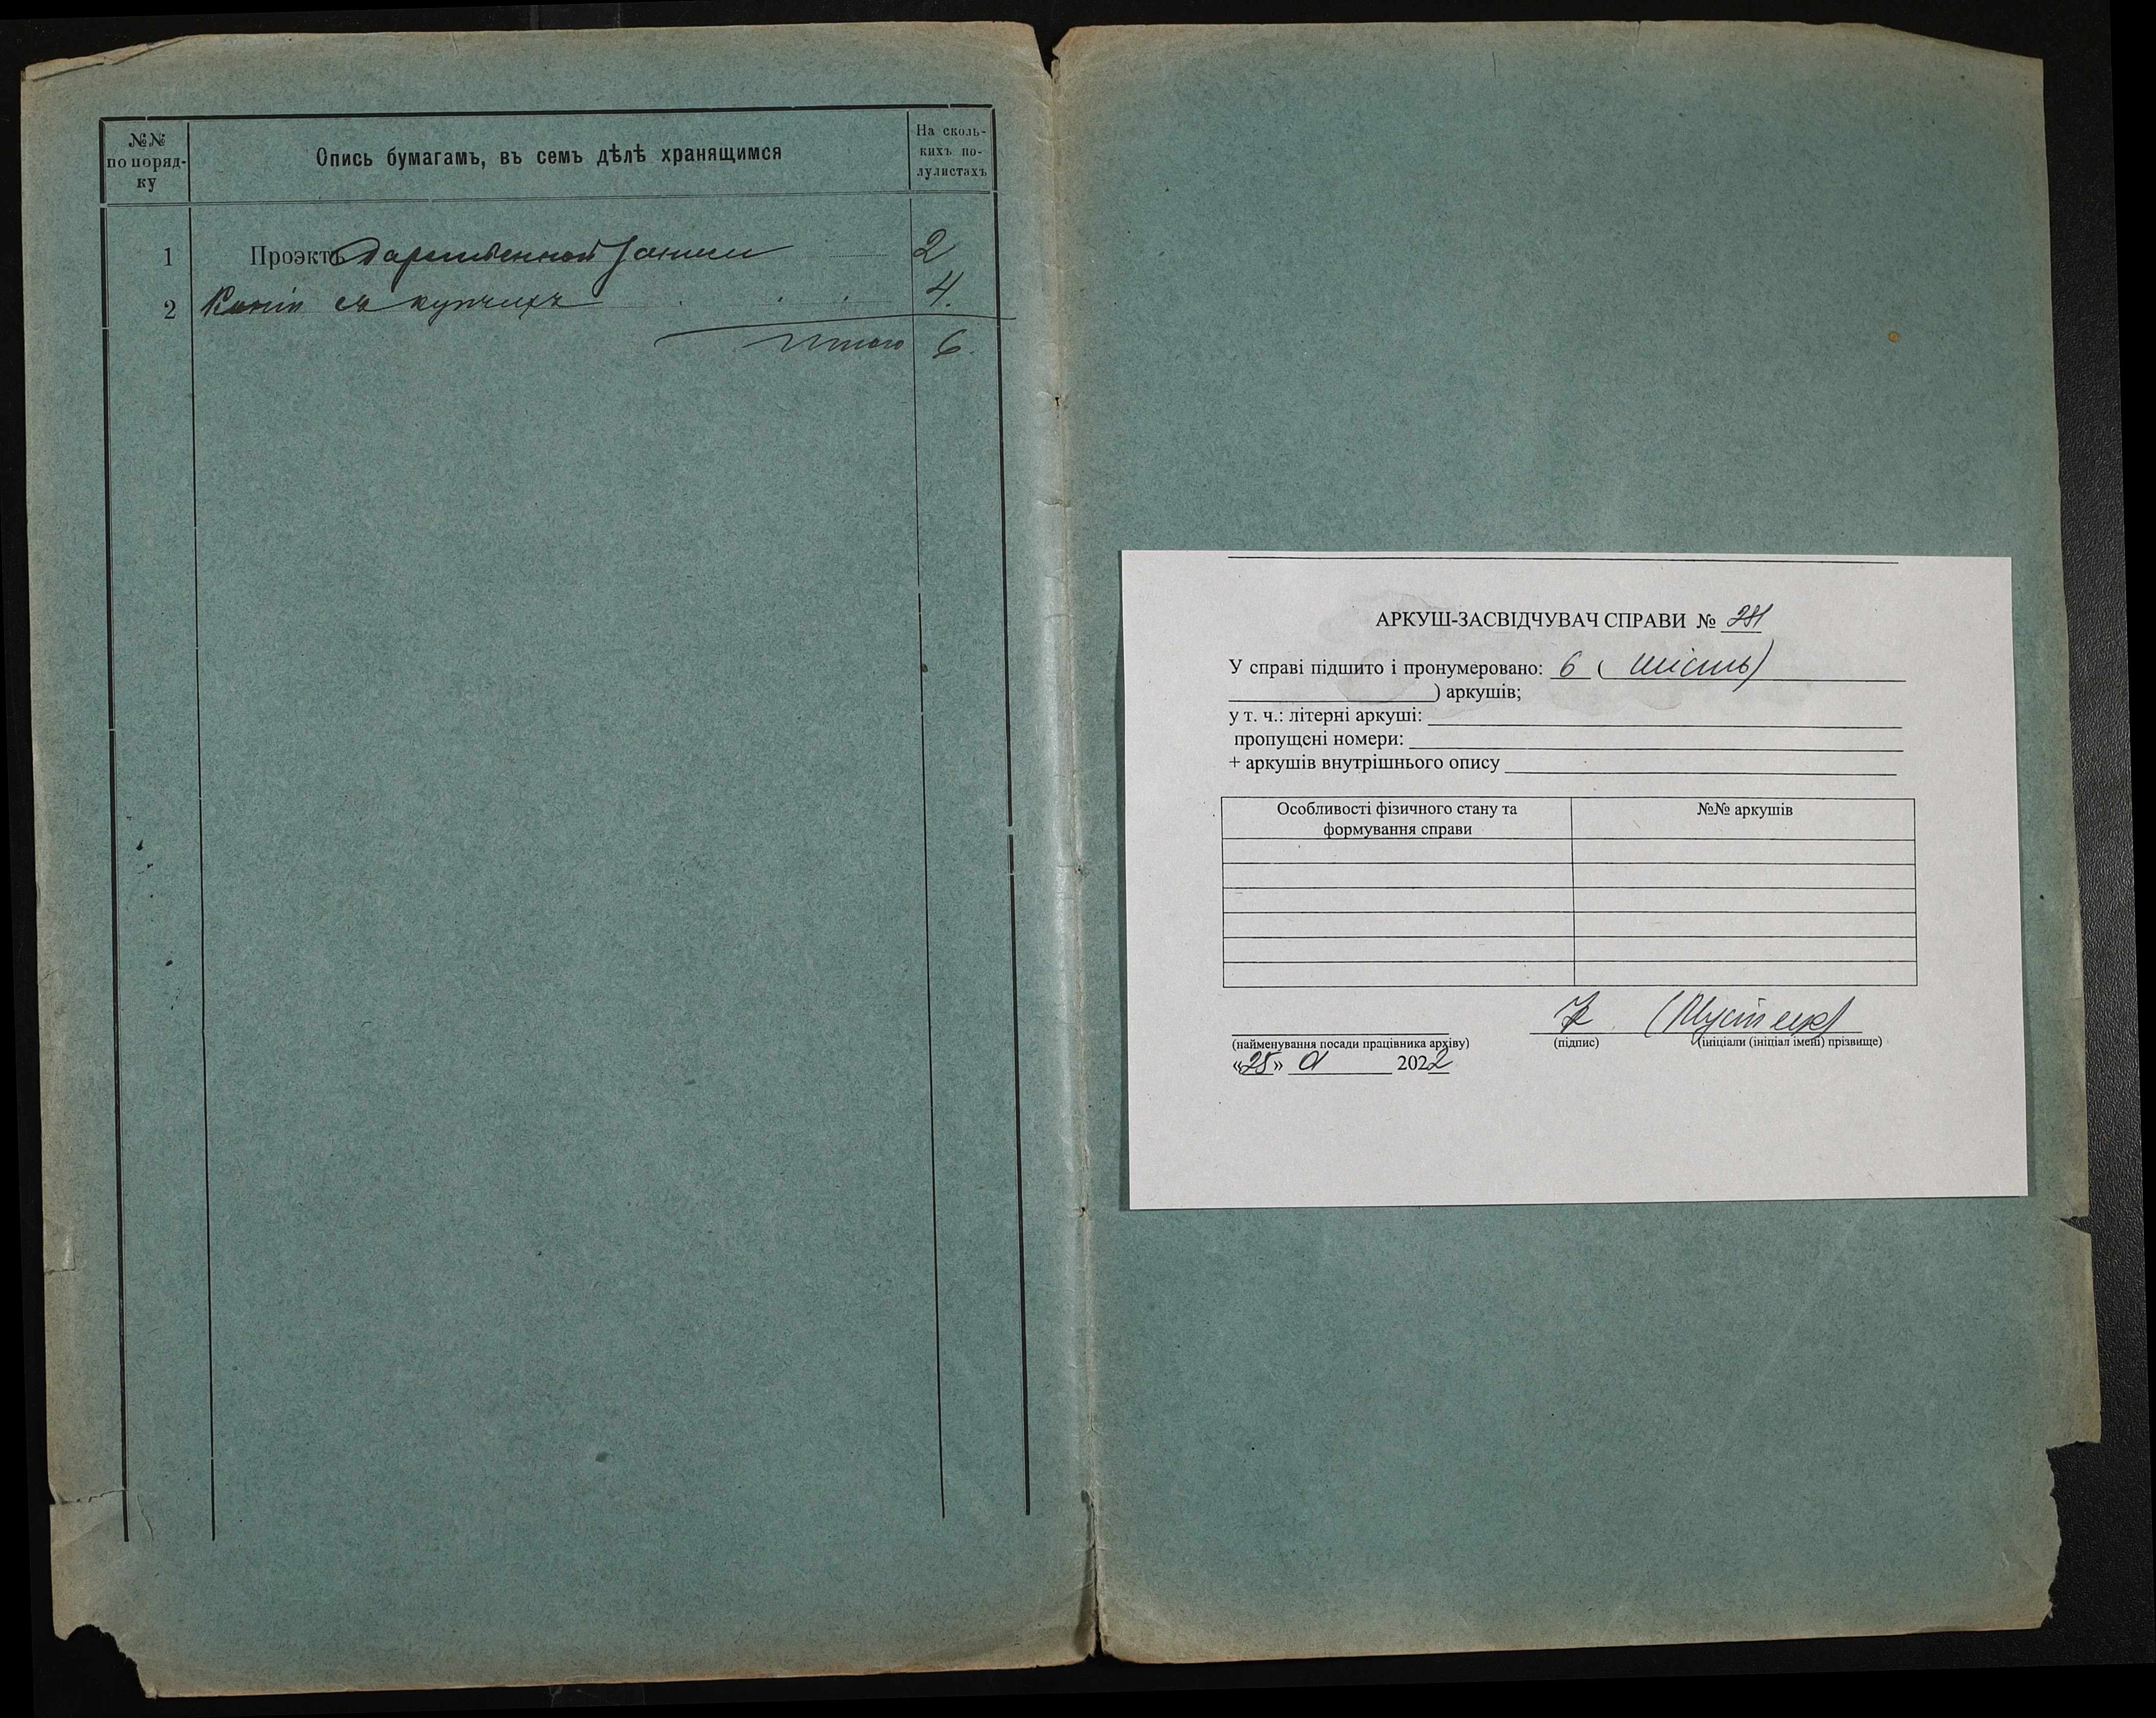 №№
по поряд-
ку
Опись бумагамъ, въ семъ дѣлѣ хранящимся
На сколь-
кихъ по-
лулистахъ
1 Проэктъ Дарственной записи 2
2 Копіи съ купчихъ 4.
Итого 6.
АРКУШ-ЗАСВІДЧУВАЧ СПРАВИ № 281
У справі підшито і пронумеровано: 6 ( шість)
) аркушів;
у т. ч.: літерні аркуші:
пропущені номери:
+ аркушів внутрішнього опису
Особливості фізичного стану та
формування справи
№№ аркушів
(найменування посади працівника архіву) (підпис) (ініціали (ініціал імені) прізвище)
«25» 2022